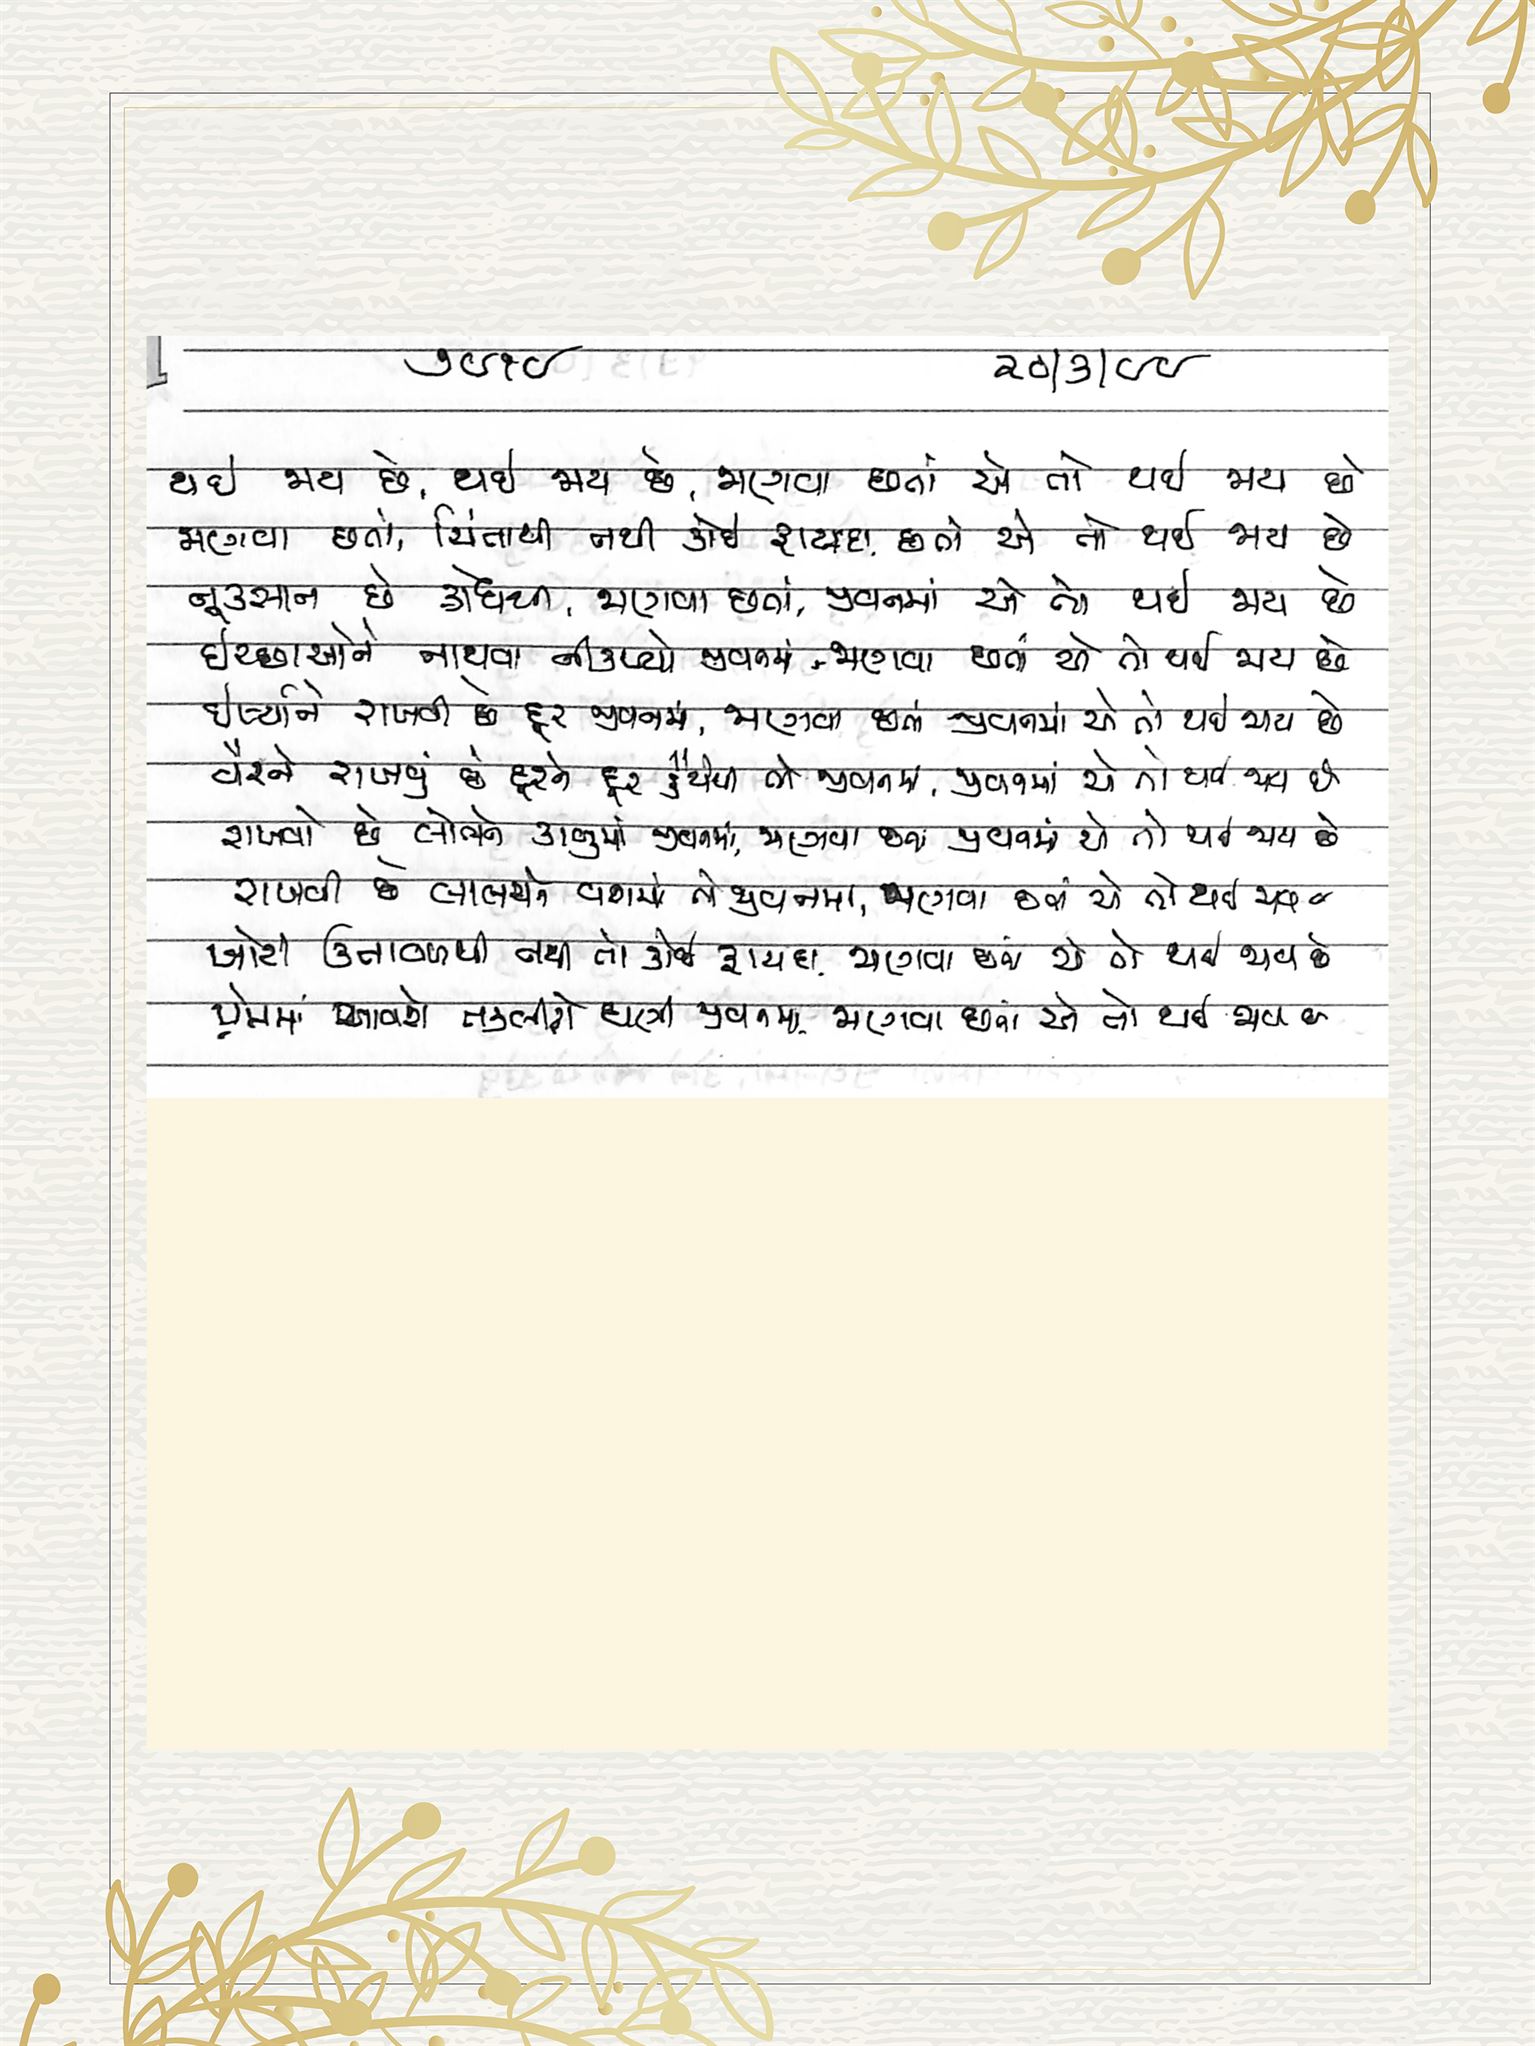 ૭૯૧૯ ૨૦/૩/૯૯
થઈ જાય છે, થઈ જાય છે, જાણવા છતાં એ તો થઈ જાય છે
જાણવા છતાં, ચિંતાથી નથી કોઈ ફાયદા, છતાં એ તો થઈ જાય છે
નૂકસાન છે ક્રોધથી, જાણવા છતાં, જીવનમાં એ તો થઈ જાય છે
ઈચ્છાઓને નાથવા નીકળ્યો જીવનમાં, જાણવા છતાં એ તો થઈ જાય છે
ઈર્ષ્યાને રાખવી છે દૂર જીવનમાં, જાણવા છતાં જીવનમાં એ તો થઈ જાય છે
વૈરને રાખવું છે દૂરને દૂર તો જીવનમાં, જીવનમાં એ તો થઈ જાય છે
રાખવો છે લોભને કાબુમાં જીવનમાં, જાણવા છતાં જીવનમાં એ તો થઈ જાય છે
રાખવી છે લાલચને વશમાં તો જીવનમાં, જાણવા છતાં એ તો થઈ જાય છે
ખોટી ઉતાવળથી નથી તો કોઈ ફાયદા, જાણવા છતાં એ તો થઈ જાય છે
પ્રેમમાં આવશે તકલીફો ઘણી જીવનમાં, જાણવા છતાં એ તો થઈ જાય છે